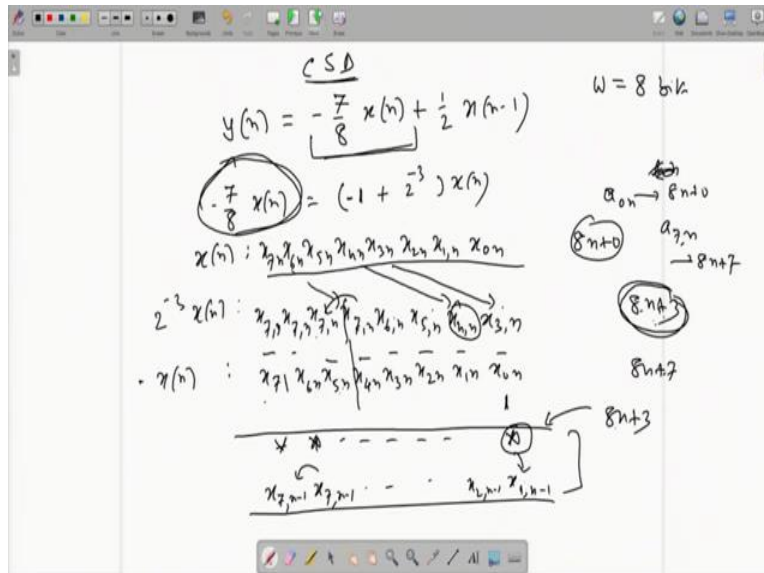 CSD
y(n) = - 7/8 x(n) + 1/2 x(n-1)
W = 8 bit
- 7/8 x(n) = (-1 + 2^-3) x(n)
a_0n → 8n+0
8n+0
a_7,n → 8n+7
x(n) : x_7n x_6n x_5n x_4n x_3n x_2n x_1,n x_0n
2^-3 x(n) : x_7,n x_7,n x_7,n x_7,n x_6,n x_5,n x_4,n x_3,n
8n+3
- x(n) : x̄_71 x̄_6n x̄_5n x̄_4n x̄_3n x̄_2n x̄_1n x̄_0n
8n+7
1
8n+3
x x - - - - - x
x_7,n-1 x_7,n-1 - - . . x_2,n-1 x_1,n-1